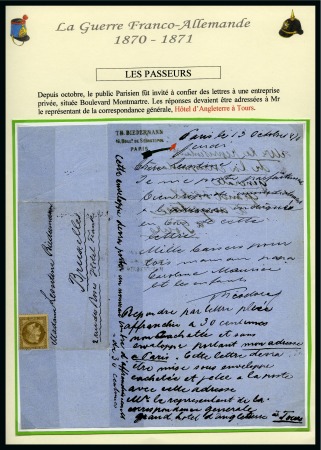 La Guerre Franco-Allemande
1870 - 1871
LES PASSEURS
Depuis octobre, le public Parisien fût invité à confier des lettres à une entreprise
privée, située Boulevard Montmartre. Les réponses devaient être adressées à Mr
le représentant de la correspondance générale, Hôtel d'Angleterre à Tours.
TH. BIEDERMANN
PARIS
Paris le 13 Octobre
Jeudi
Chère Léontine
Je me porte parfaitement
cette
lettre
Mille baisers pour
toi maman papa
Caroline Maurice
et les enfants
Théodore
Répondre par lettre pliée
affranchie à 30 centimes
non cachetée et sous
enveloppe portant mon adresse
à Paris. Cette lettre devra
être mise sous enveloppe
cachetée et jetée à la poste
avec cette adresse
Mr le représentant de la
correspondance générale
grand hôtel d'angleterre à Tours
Madame Léontine Biedermann
Bruxelles